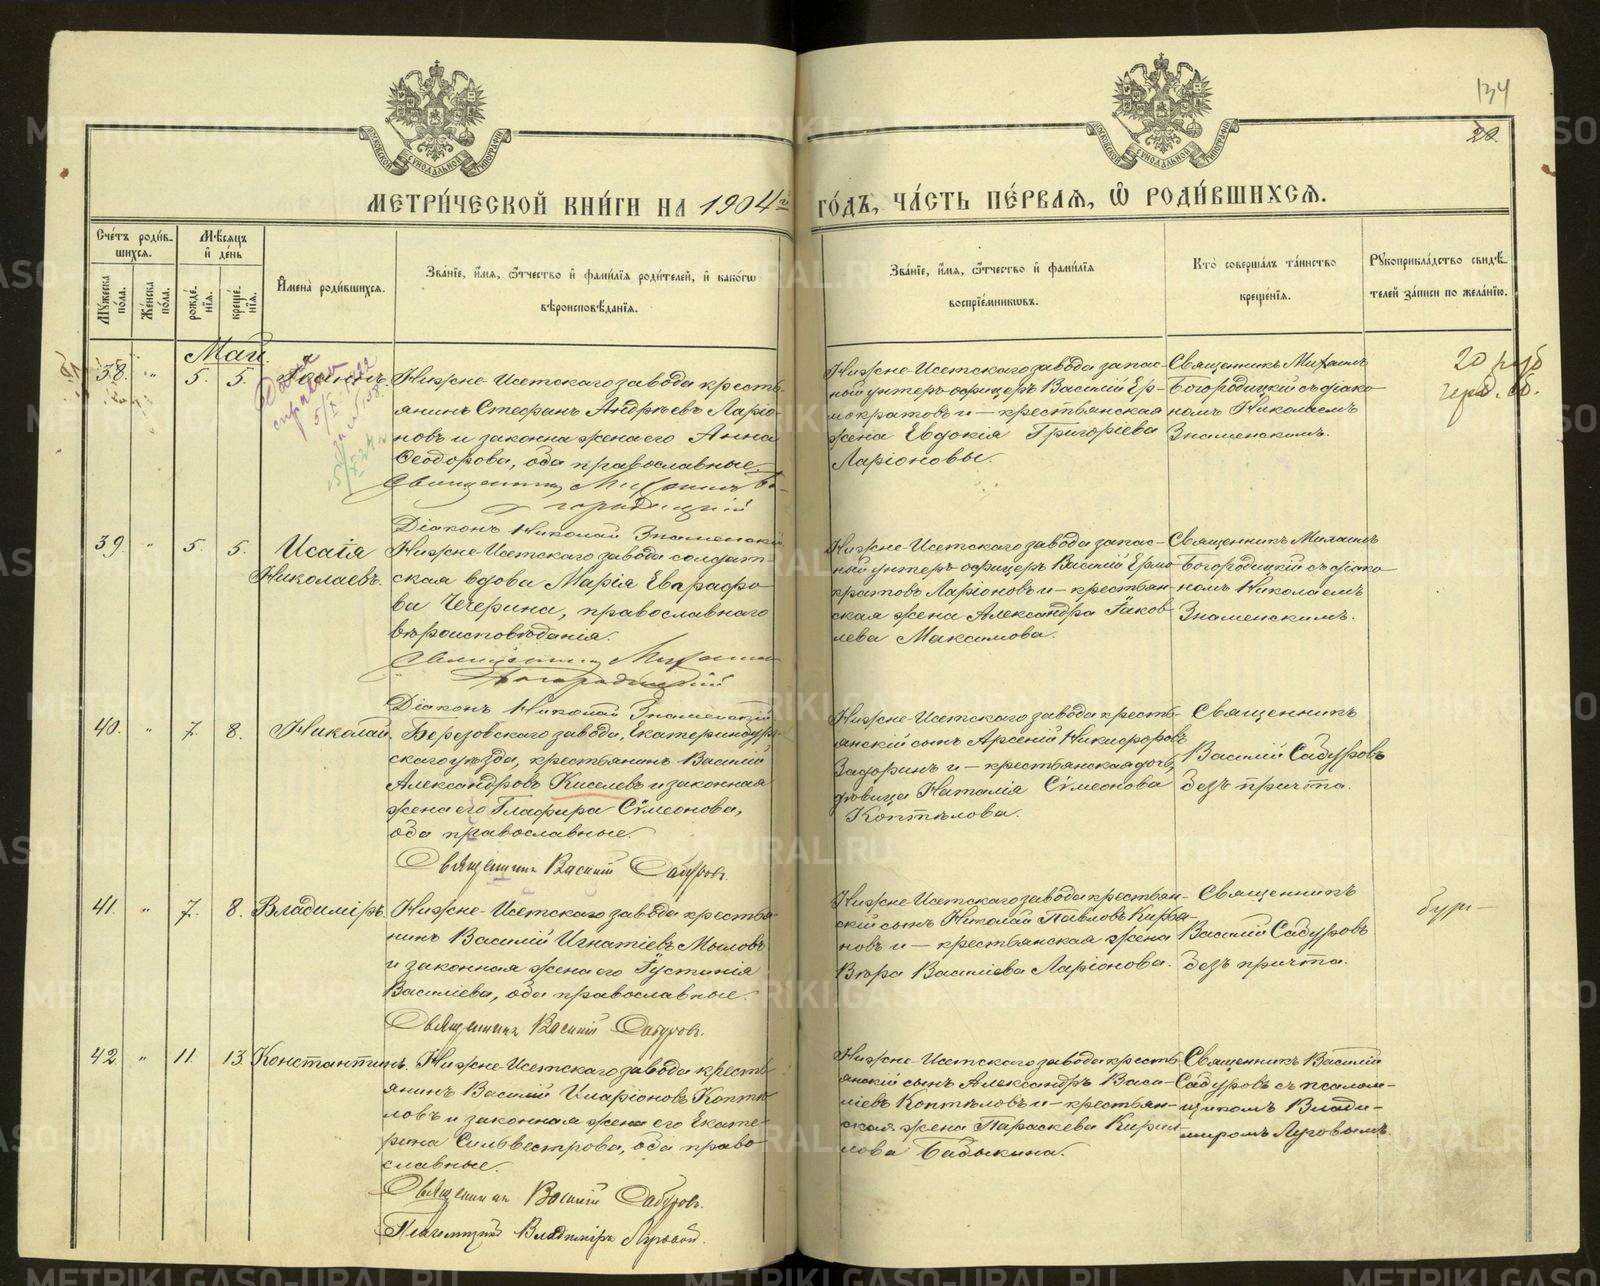 134
20
МОСКОВСКОЙ СѴНОДАЛЬНОЙ ТИПОГРАФІИ
МОСКОВСКОЙ СѴНОДАЛЬНОЙ ТИПОГРАФІИ
МЕТРИ́ЧЕСКОЙ КНИ́ГИ НА 1904 й ГО́ДЪ, ЧА́СТЬ ПЕ́РВАѦ, Ѽ РОДИ́ВШИХСѦ.
Сче́тъ роди́вшихсѧ.
Мꙋ́жеска по́ла.
Же́нска по́ла.
Мѣ́сѧцъ и҆ де́нь
рожде́нїѧ.
креще́нїѧ.
И҆мена̀ роди́вшихсѧ.
Зва́нїе, и҆́мѧ, ѻ҆́тчество и҆ фами́лїѧ роди́телей, и҆ како́гѡ
вѣроисповѣ́данїѧ.
Зва́нїе, и҆́мѧ, ѻ҆́тчество и҆ фами́лїѧ
воспрїе́мникѡвъ.
Кто̀ соверша́лъ та́инство
креще́нїѧ.
Рꙋкоприкла́дство свидѣ́телей за́писи по жела́нїю.
Май.
38. " 5. 5. Іоаннъ.
Нижне-Исетскаго завода кресть-
янинъ Стефанъ Андреевъ Ларіо-
новъ и законная жена его Анна
Ѳеодорова, оба православные.
Священникъ Михаилъ Бо-
городицкій
Діаконъ Николай Знаменскій
Нижне-Исетскаго завода запас-
ный унтеръ-офицеръ Василій Ер-
мократовъ и – крестьянская
жена Евдокія Григоріева
Ларіоновы.
Священникъ Михаилъ
Богородицкій съ діако-
номъ Николаемъ
Знаменскимъ.
20 руб
герб. сб.
39. " 5. 5. Исаія
Николаевъ.
Нижне-Исетскаго завода солдат-
ская вдова Марія Евграфо-
ва Чечерина, православнаго
вѣроисповѣданія.
Священникъ Михаилъ
Богородицкій
Діаконъ Николай Знаменскій
Нижне-Исетскаго завода запас-
ный унтеръ-офицеръ Василій Ермо-
кратовъ Ларіоновъ и – крестьян-
ская жена Александра Іаков-
лева Максимова.
Священникъ Михаилъ
Богородицкій съ діако-
номъ Николаемъ
Знаменскимъ.
40. " 7. 8. Николай.
Березовскаго завода, Екатеринбург-
скаго уѣзда, крестьянинъ Василій
Александровъ Киселевъ и законная
жена его Глафира Сѵмеонова,
оба православные.
Священникъ Василій Сабуровъ.
Нижне-Исетскаго завода кресть-
янскій сынъ Арсеній Никифоровъ
Задоринъ и – крестьянская дочь,
дѣвица Наталія Сѵмеонова
Коптѣлова.
Священникъ
Василій Сабуровъ
безъ причта.
41. " 7. 8. Владиміръ.
Нижне-Исетскаго завода крестья-
нинъ Василій Игнатіевъ Мыловъ
и законная жена его Іустинія
Василіева, оба православные.
Священникъ Василій Сабуровъ.
Нижне-Исетскаго завода крестьян-
скій сынъ Николай Павловъ Кирья-
новъ и – крестьянская жена
Вѣра Василіева Ларіонова.
Священникъ
Василій Сабуровъ
безъ причта.
42. " 11. 13. Константинъ.
Нижне-Исетскаго завода кресть-
янинъ Василій Иларіоновъ Коптѣ-
ловъ и законная жена его Екате-
рина Сильвестрова, оба право-
славные.
Священникъ Василій Сабуровъ.
Псаломщикъ Владиміръ Луговой.
Нижне-Исетскаго завода кресть-
янскій сынъ Александръ Васи-
ліевъ Коптѣловъ и – крестьян-
ская жена Параскева Кирил-
лова Бабыкина.
Священникъ Василій
Сабуровъ съ псалом-
щикомъ Влади-
миромъ Луговымъ.
METRIKI.GASO-URAL.RU